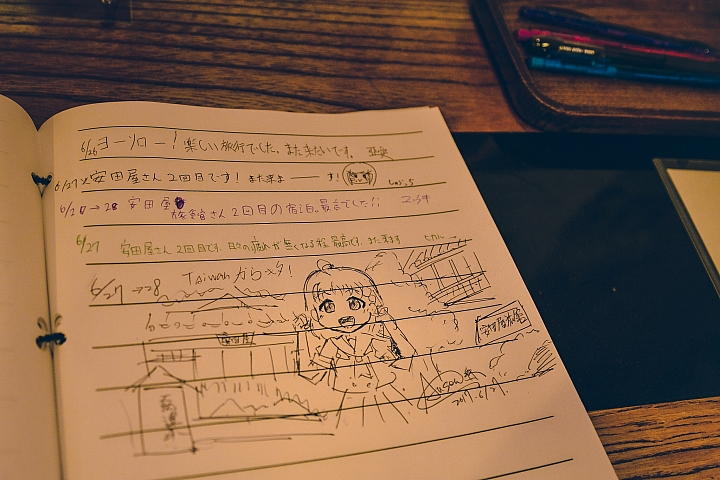 6/26 ヨーソロー! 楽しい旅行でした。また来たいです。
6/27 安田屋さん2回目です! また来ま――す!
6/27→28 安田屋旅館さん2回目の宿泊。最高でした!!
6/27 安田屋さん2回目です。日々の疲れが無くなる程、最高です。また来ます
6/27→28 Taiwanから
安田屋
安田屋旅館
2017.6/27.